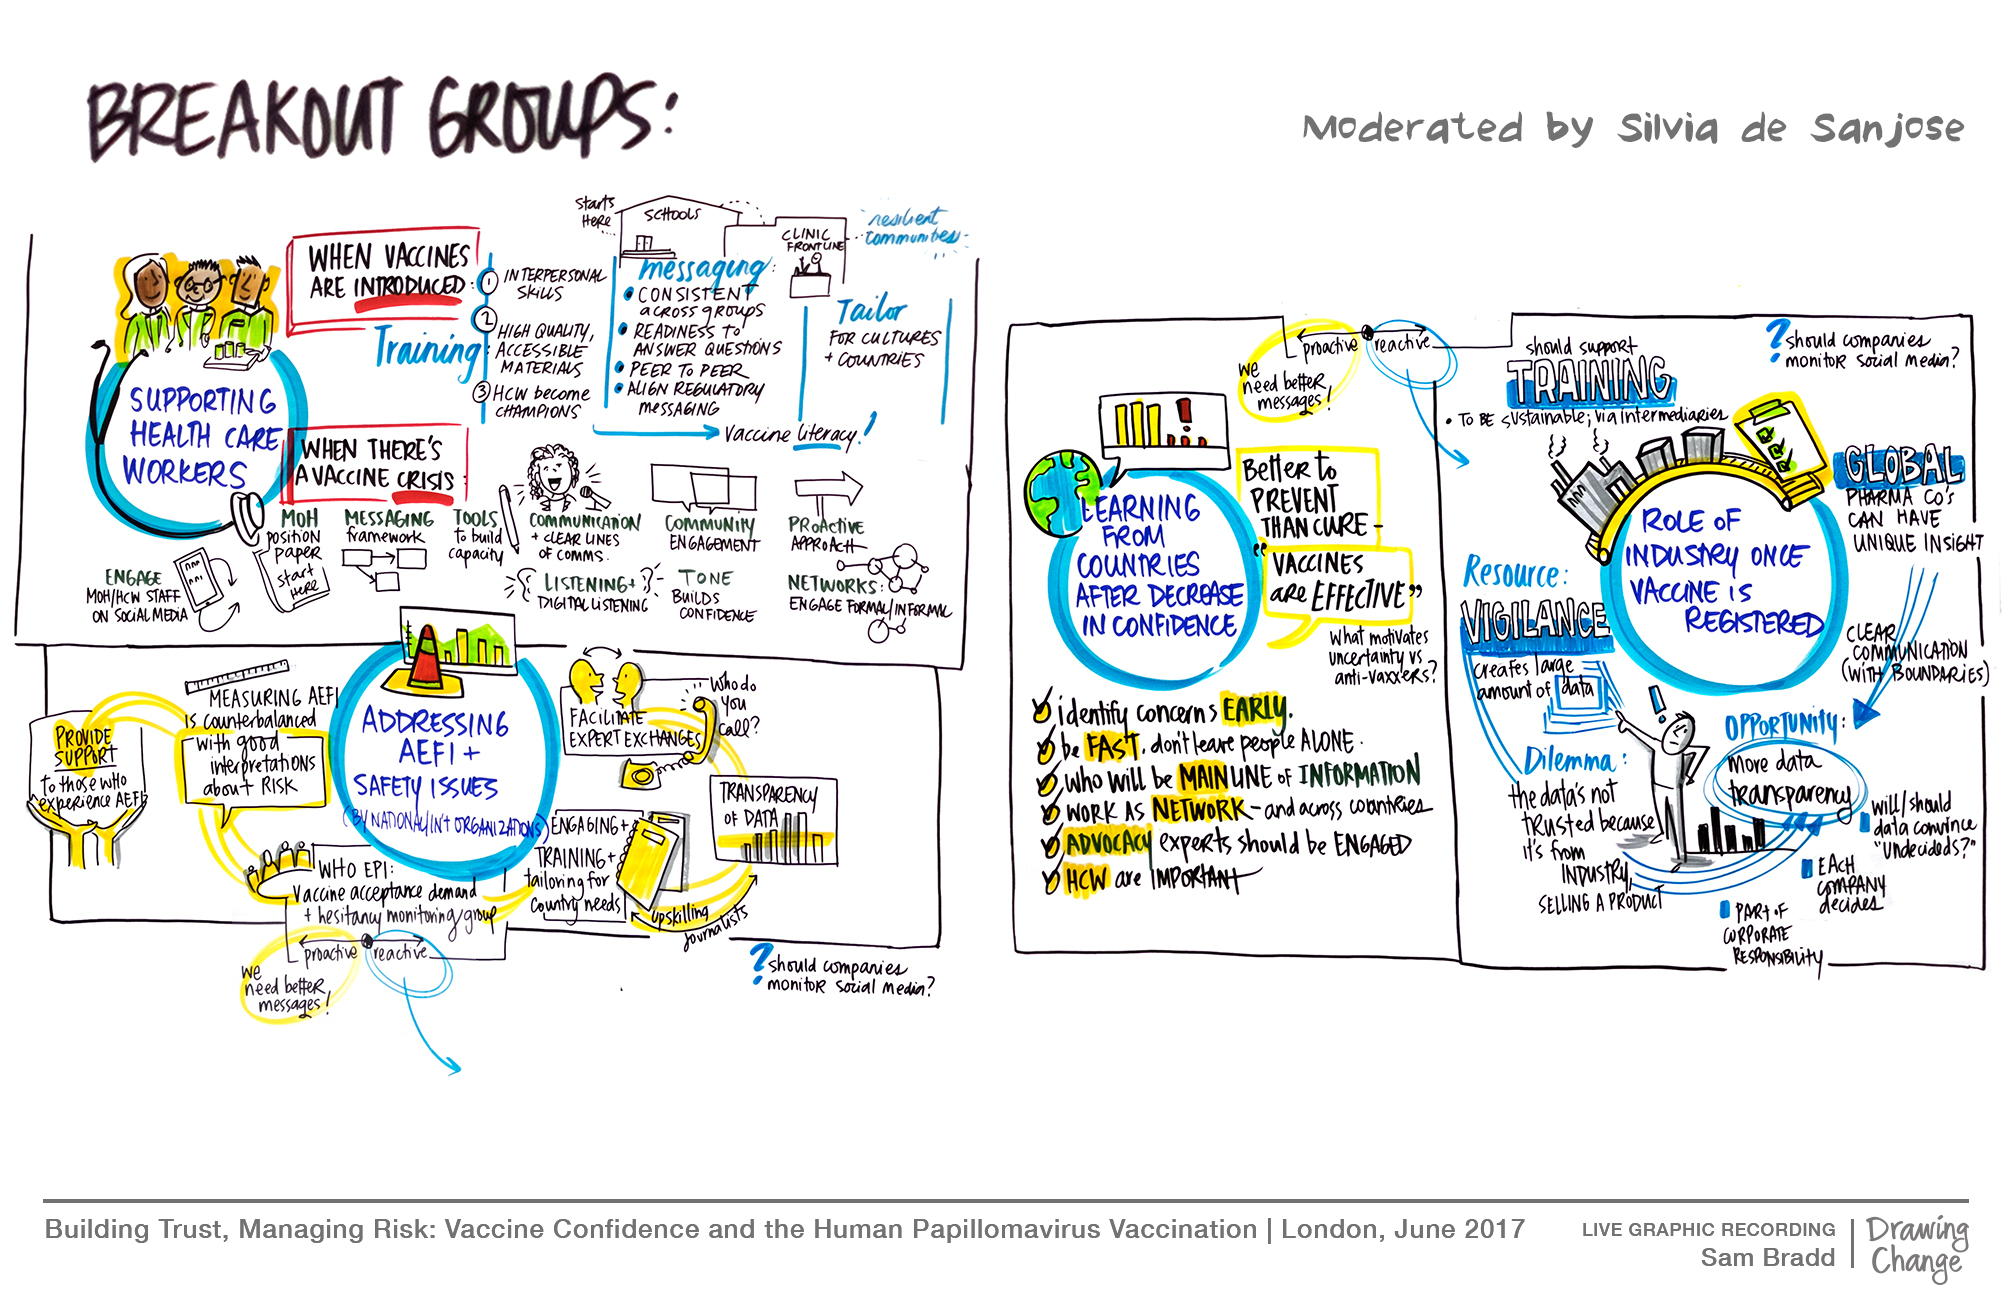 BREAKOUT GROUPS:
Moderated by Silvia de Sanjose
SUPPORTING
HEALTH CARE
WORKERS
WHEN VACCINES
ARE INTRODUCED:
Training:
1 INTERPERSONAL
SKILLS
2 HIGH QUALITY,
ACCESSIBLE
MATERIALS
3 HCW become
CHAMPIONS
Starts
Here
SCHOOLS
CLINIC
FRONTLINE
resilient
communities
messaging:
• CONSISTENT
across groups
• READINESS to
ANSWER QUESTIONS
• PEER to PEER
• ALIGN REGULATORY
MESSAGING
Tailor
FOR CULTURES
+ COUNTRIES
Vaccine literacy!
WHEN THERE'S
A VACCINE CRISIS:
ENGAGE
MOH/HCW STAFF
ON SOCIAL MEDIA
MOH
position
paper
start
HERE
MESSAGING
framework
TOOLS
to build
capacity
COMMUNICATION
+ CLEAR LINES
OF COMMS.
LISTENING+
DIGITAL LISTENING
COMMUNITY
ENGAGEMENT
TONE
BUILDS
CONFIDENCE
PROACTIVE
APPROACH
NETWORKS:
ENGAGE FORMAL/INFORMAL
ADDRESSING
AEFI +
SAFETY ISSUES
(BY NATIONAL/INT ORGANIZATIONS)
PROVIDE
SUPPORT
to those who
experience AEFI
MEASURING AEFI
is counterbalanced
with good
interpretations
about RISK
WHO EPI:
Vaccine acceptance demand
+ hesitancy monitoring group
FACILITATE
EXPERT EXCHANGES
Who do
you
call?
ENGAGING+
TRAINING+
tailoring for
country needs
TRANSPARENCY
OF DATA
upskilling
journalists
proactive
reactive
we
need better
messages!
? should companies
monitor social media?
LEARNING
FROM
COUNTRIES
AFTER DECREASE
IN CONFIDENCE
proactive
reactive
we
need better
messages!
Better to
PREVENT
THAN CURE -
"VACCINES
are EFFECTIVE"
What motivates
uncertainty vs
anti-vaxxers?
identify concerns EARLY.
be FAST, don't leave people ALONE.
WHO will be MAIN LINE of INFORMATION
WORK AS NETWORK - and across countries
ADVOCACY experts should be ENGAGED
HCW are IMPORTANT
ROLE OF
INDUSTRY ONCE
VACCINE is
REGISTERED
should support
TRAINING
• TO BE sustainable; via intermediaries
? should companies
monitor social media?
GLOBAL
PHARMA CO's
CAN HAVE
UNIQUE INSIGHT
CLEAR
COMMUNICATION
(WITH BOUNDARIES)
Resource:
VIGILANCE
creates large
amount of data
Dilemma:
the data's not
trusted because
it's from
INDUSTRY,
SELLING A PRODUCT
OPPORTUNITY:
more data
transparency
will/should
data convince
"undecideds?"
EACH
COMPANY
decides
PART OF
CORPORATE
RESPONSIBILITY
Building Trust, Managing Risk: Vaccine Confidence and the Human Papillomavirus Vaccination | London, June 2017
LIVE GRAPHIC RECORDING
Sam Bradd
Drawing
Change